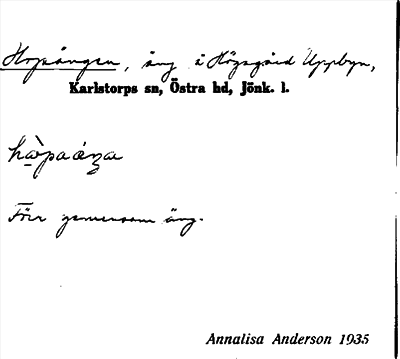 Hopaängen, äng å Högsgård Uppbyn,
Karlstorps sn, Östra hd, Jönk. l.
Förr gemensam äng.
Annalisa Anderson 1935